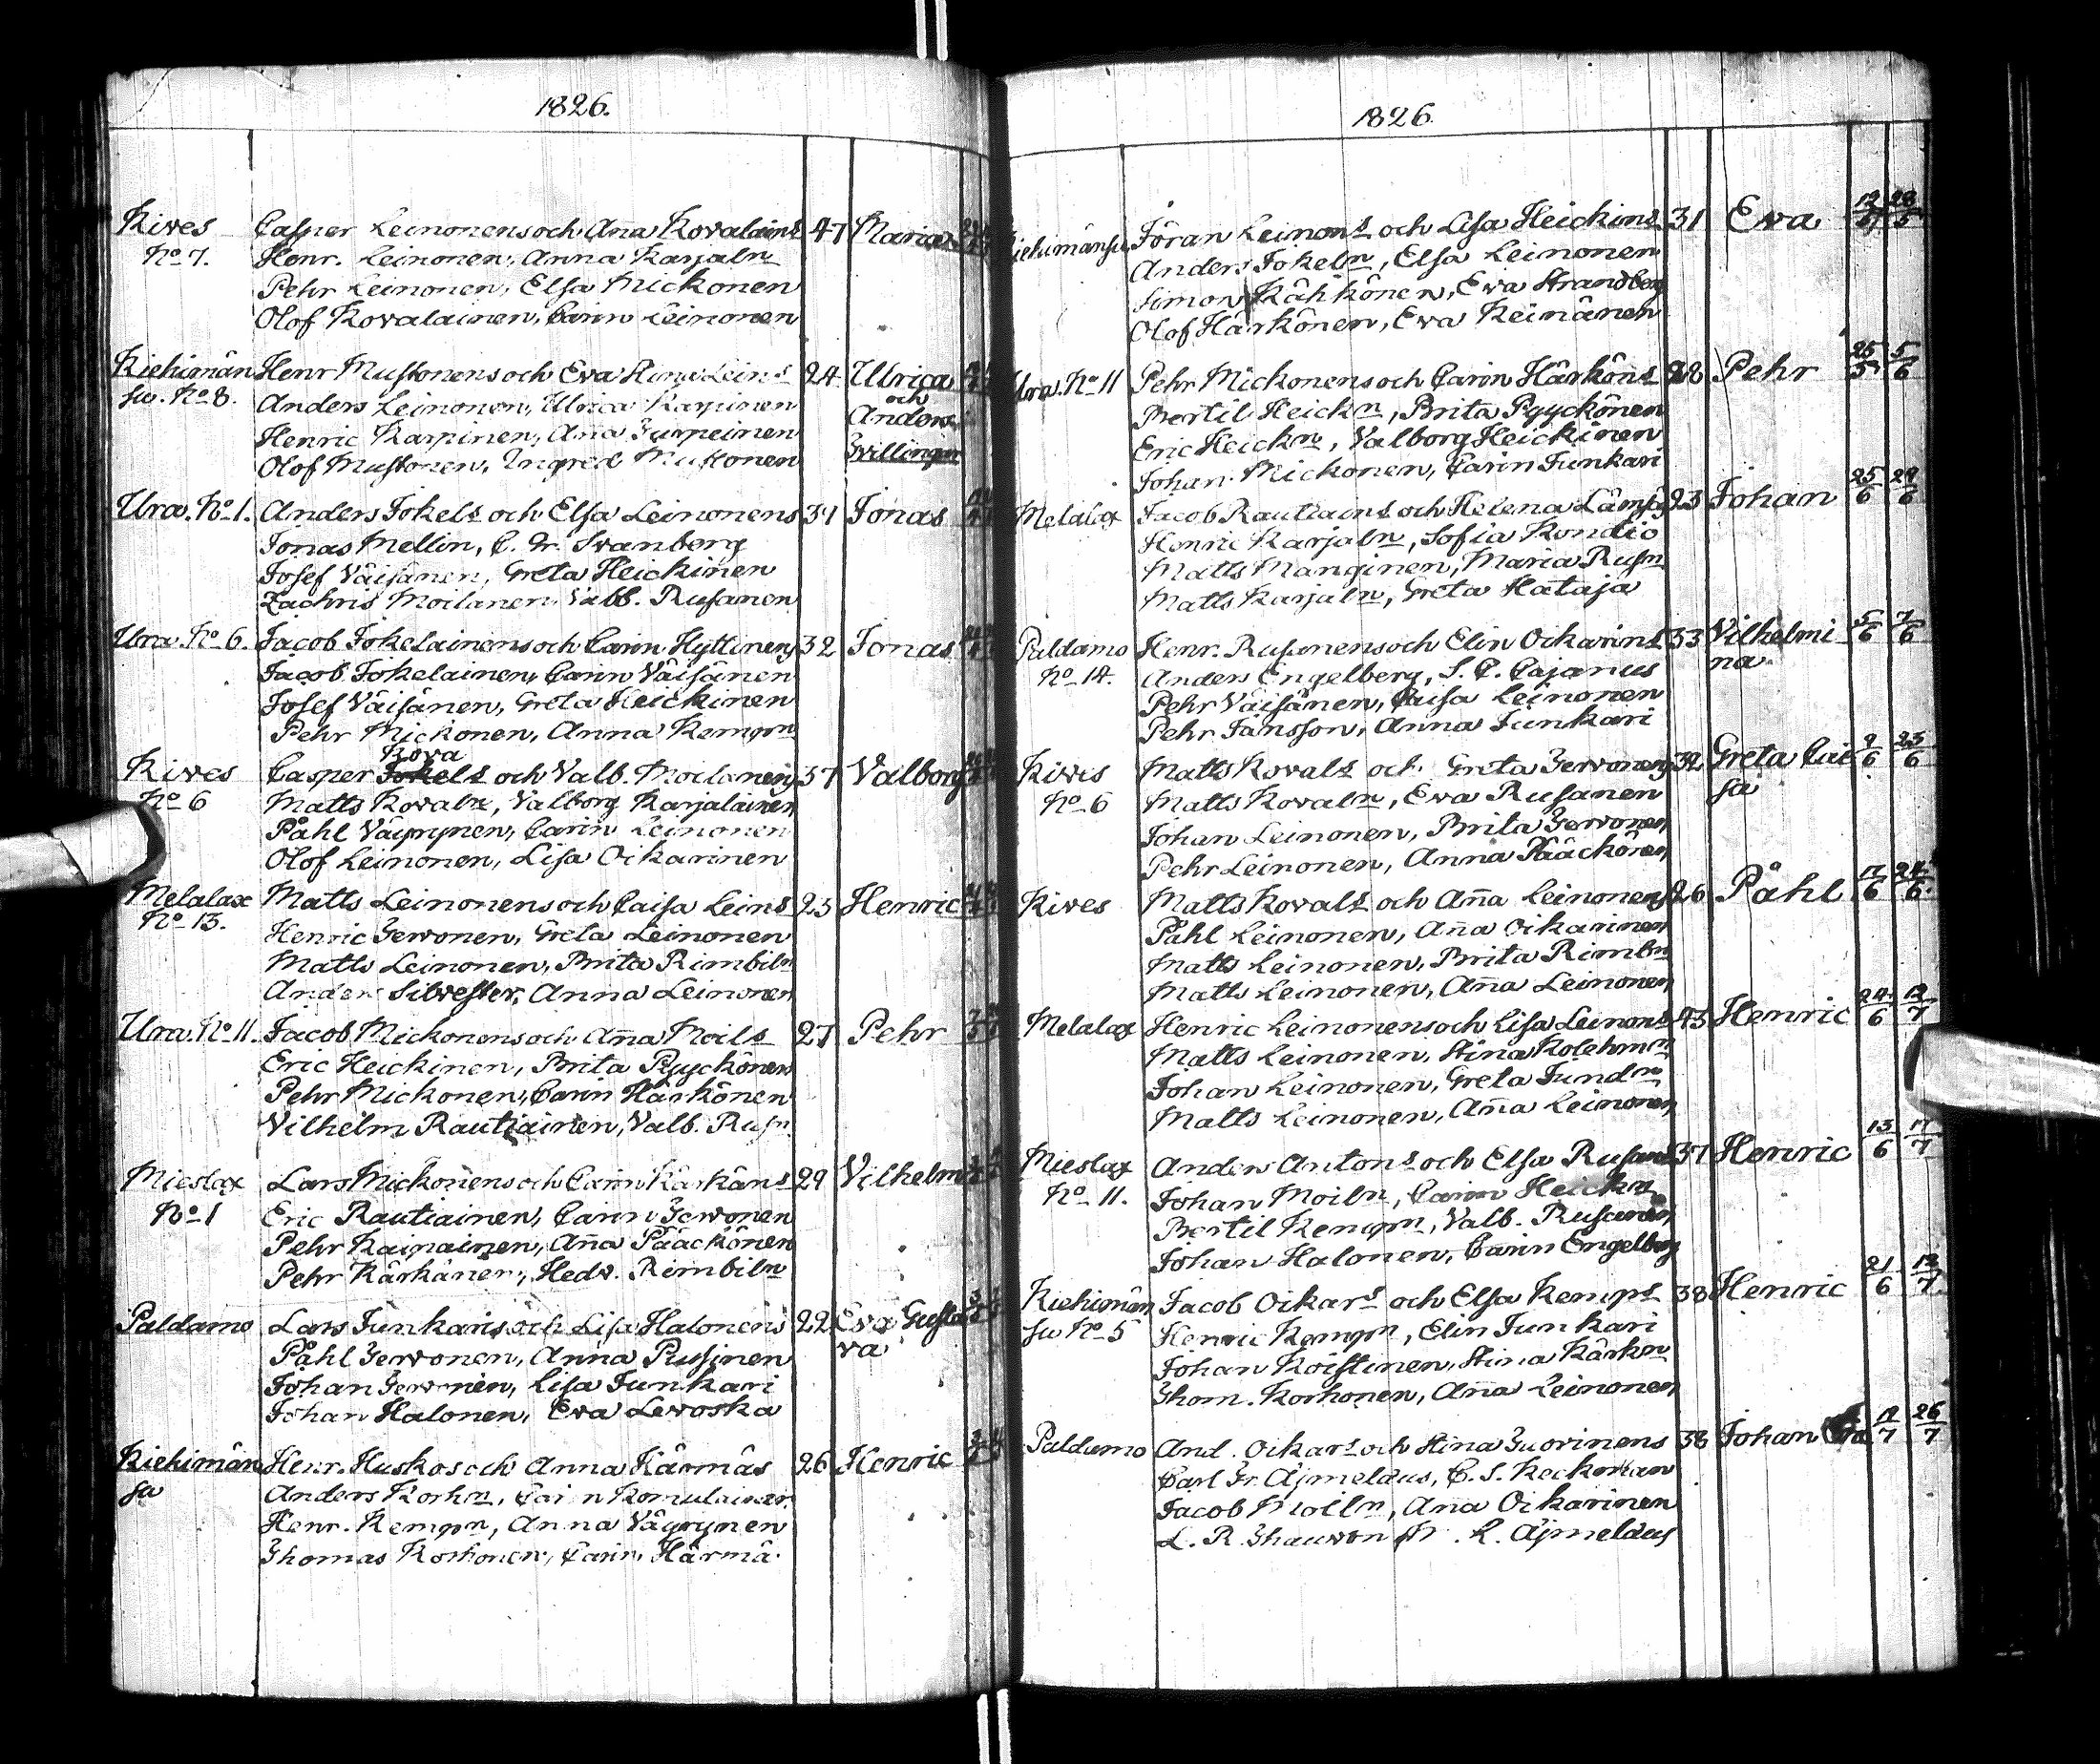 1826.
Kives Casper Leinonens och Aña Kovalains 47 Maria
No 7. Henr. Leinonen, Anna Karjaln
Pehr Leinonen, Elsa Mickonen
Olof Kovalainen, Carin Leinonen
Kiehimän Henr Mustonens och Eva Leins 24 Ulrica
su. No 8. Anders Leinonen, Ulrica Karpinen och
Henric Karpinen, Aña Anders
Olof Mustonen, Ingred Mustonen Tvillingar
Ura. No 1. Anders Jokels och Elsa Leinonens 31 Jonas
Jonas Mellin, C. Gr. Svanberg
Josef Väisänen, Greta Heickinen
Zachris Moilanen, Valb. Rusanen
Ura. No 6. Jacob Jokelainens och Carin Hyttinens 32 Jonas
Jacob Jokelainen, Carin Väisänen
Josef Väisänen, Greta Heickinen
Pehr Mickonen, Anna Kempn
Kova
Kives Casper Jokels och Valb. Moilanens 37 Valborg
No 6 Matts Kovaln, Valborg Karjalainen
Påhl Väyrynen, Carin Leinonen
Olof Leinonen, Lisa Oikarinen
Melalax Matts Leinonens och Caisa Leins 23 Henric
No 13. Henric Tervonen, Greta Leinonen
Matts Leinonen, Brita Rimbiln
Anders Silvester, Anna Leinonen
Ura. No 11. Jacob Mickonens och Aña Moils 27 Pehr
Eric Heickinen, Brita Pyyckönen
Pehr Mickonen, Carin Härkönen
Vilhelm Rautiainen, Valb. Rusn
Mieslax Lars Mickonens och Carin Kärkäns 29 Vilhelm
No 1 Eric Rautiainen, Carin Tervonen
Pehr Kainainen, Aña Pääckönen
Pehr Kärkänen, Hedv. Rimbiln
Paldamo Lars Junkaris och Lisa Halonens 22 Eva Gusta
Påhl Tervonen, Anna Pussinen va
Johan Tervonen, Lisa Junkari
Johan Halonen, Eva Levoska
Kiehimän Henr. Huskos och Anna Härmäs 26 Henric
su Anders Korhn, Carin Komulainen
Henr. Kempn, Anna Väyrynen
Thomas Korhonen, Carin Härmä
1826.
Kiehimänsu Jöran Leinons och Lisa Heickins 31 Eva 12/5 28/5
Anders Jokeln, Elsa Leinonen
Simon Kähkönen, Eva Strandberg
Olof Härkönen, Eva Keinänen
Ura. No 11 Pehr Mickonens och Carin Härköns 28 Pehr 25/5 5/6
Bertil Heickn, Brita Pyyckönen
Eric Heickn, Valborg Heickinen
Johan Mickonen, Carin Junkari
Melalax Jacob Rautiains och Helena Lämsäs 23 Johan 25/6 29/6
Henric Karjaln, Sofia Kondio
Matts Manginen, Maria Rusn
Matts Karjaln, Greta Hataja
Paldamo Henr. Rusanens och Elin Oikarins 33 Vilhelmi 5/6 7/6
No 14. Anders Engelberg, S. C. Cajanus na
Pehr Väisänen, Caisa Leinonen
Pehr Jansson, Anna Junkari
Kives Matts Kovals och Greta Tervonens 32 Greta Cai 9/6 23/6
No 6 Matts Kovaln, Eva Rusanen sa
Johan Leinonen, Brita Tervonen
Pehr Leinonen, Anna Pääckönen
Kives Matts Kovals och Aña Leinonens 26 Påhl 17/6 24/6
Påhl Leinonen, Aña Oikarinen
Matts Leinonen, Brita Rimbn
Matts Leinonen, Aña Leinonen
Melalax Henric Leinonens och Lisa Leinons 43 Henric 24/6 12/7
Matts Leinonen, Stina Kolehmn
Johan Leinonen, Greta Jundn
Matts Leinonen, Aña Leinonen
Mieslax Anders Antons och Elsa Rusans 37 Henric 13/6 17/7
No 11. Johan Moiln, Carin Heickn
Bertil Kempn, Valb. Rusanen
Johan Halonen, Carin Engelberg
Kiehimän Jacob Oikars och Elsa Kemps 38 Henric 21/6 12/7
su No 5 Henric Kempn, Elin Junkari
Johan Koistinen, Stina Kärkn
Thom. Korhonen, Aña Leinonen
Paldamo And. Oikars och Stina Tuorinens 38 Johan 17/7 26/7
Carl Fr. Ajmelaus, C. S. Keckman
Jacob Moiln, Aña Oikarinen
L. R. Thauvon L. Ajmelaus